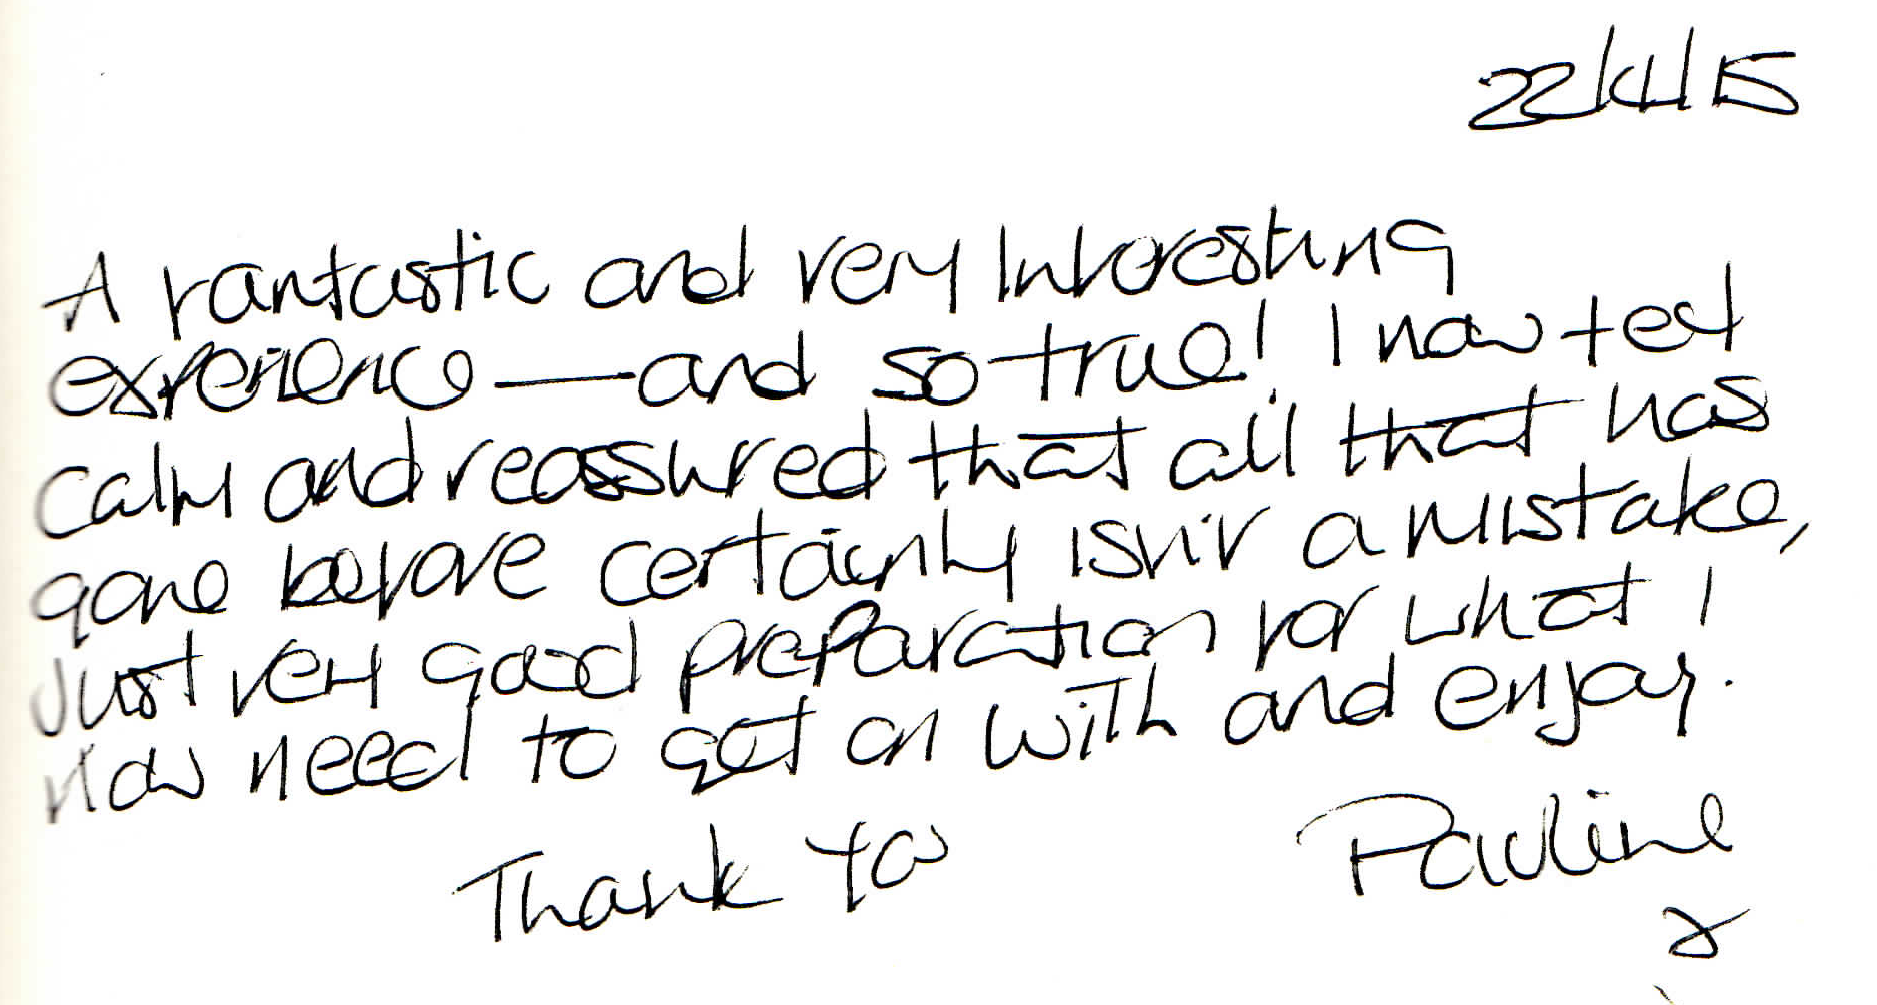 22/4/15
A fantastic and very Interesting
experience — and so true! I now feel
calm and reassured that all that has
gone before certainly isn't a mistake,
Just very good preparation for what I
now need to get on with and enjoy.
Thank You Pauline
x